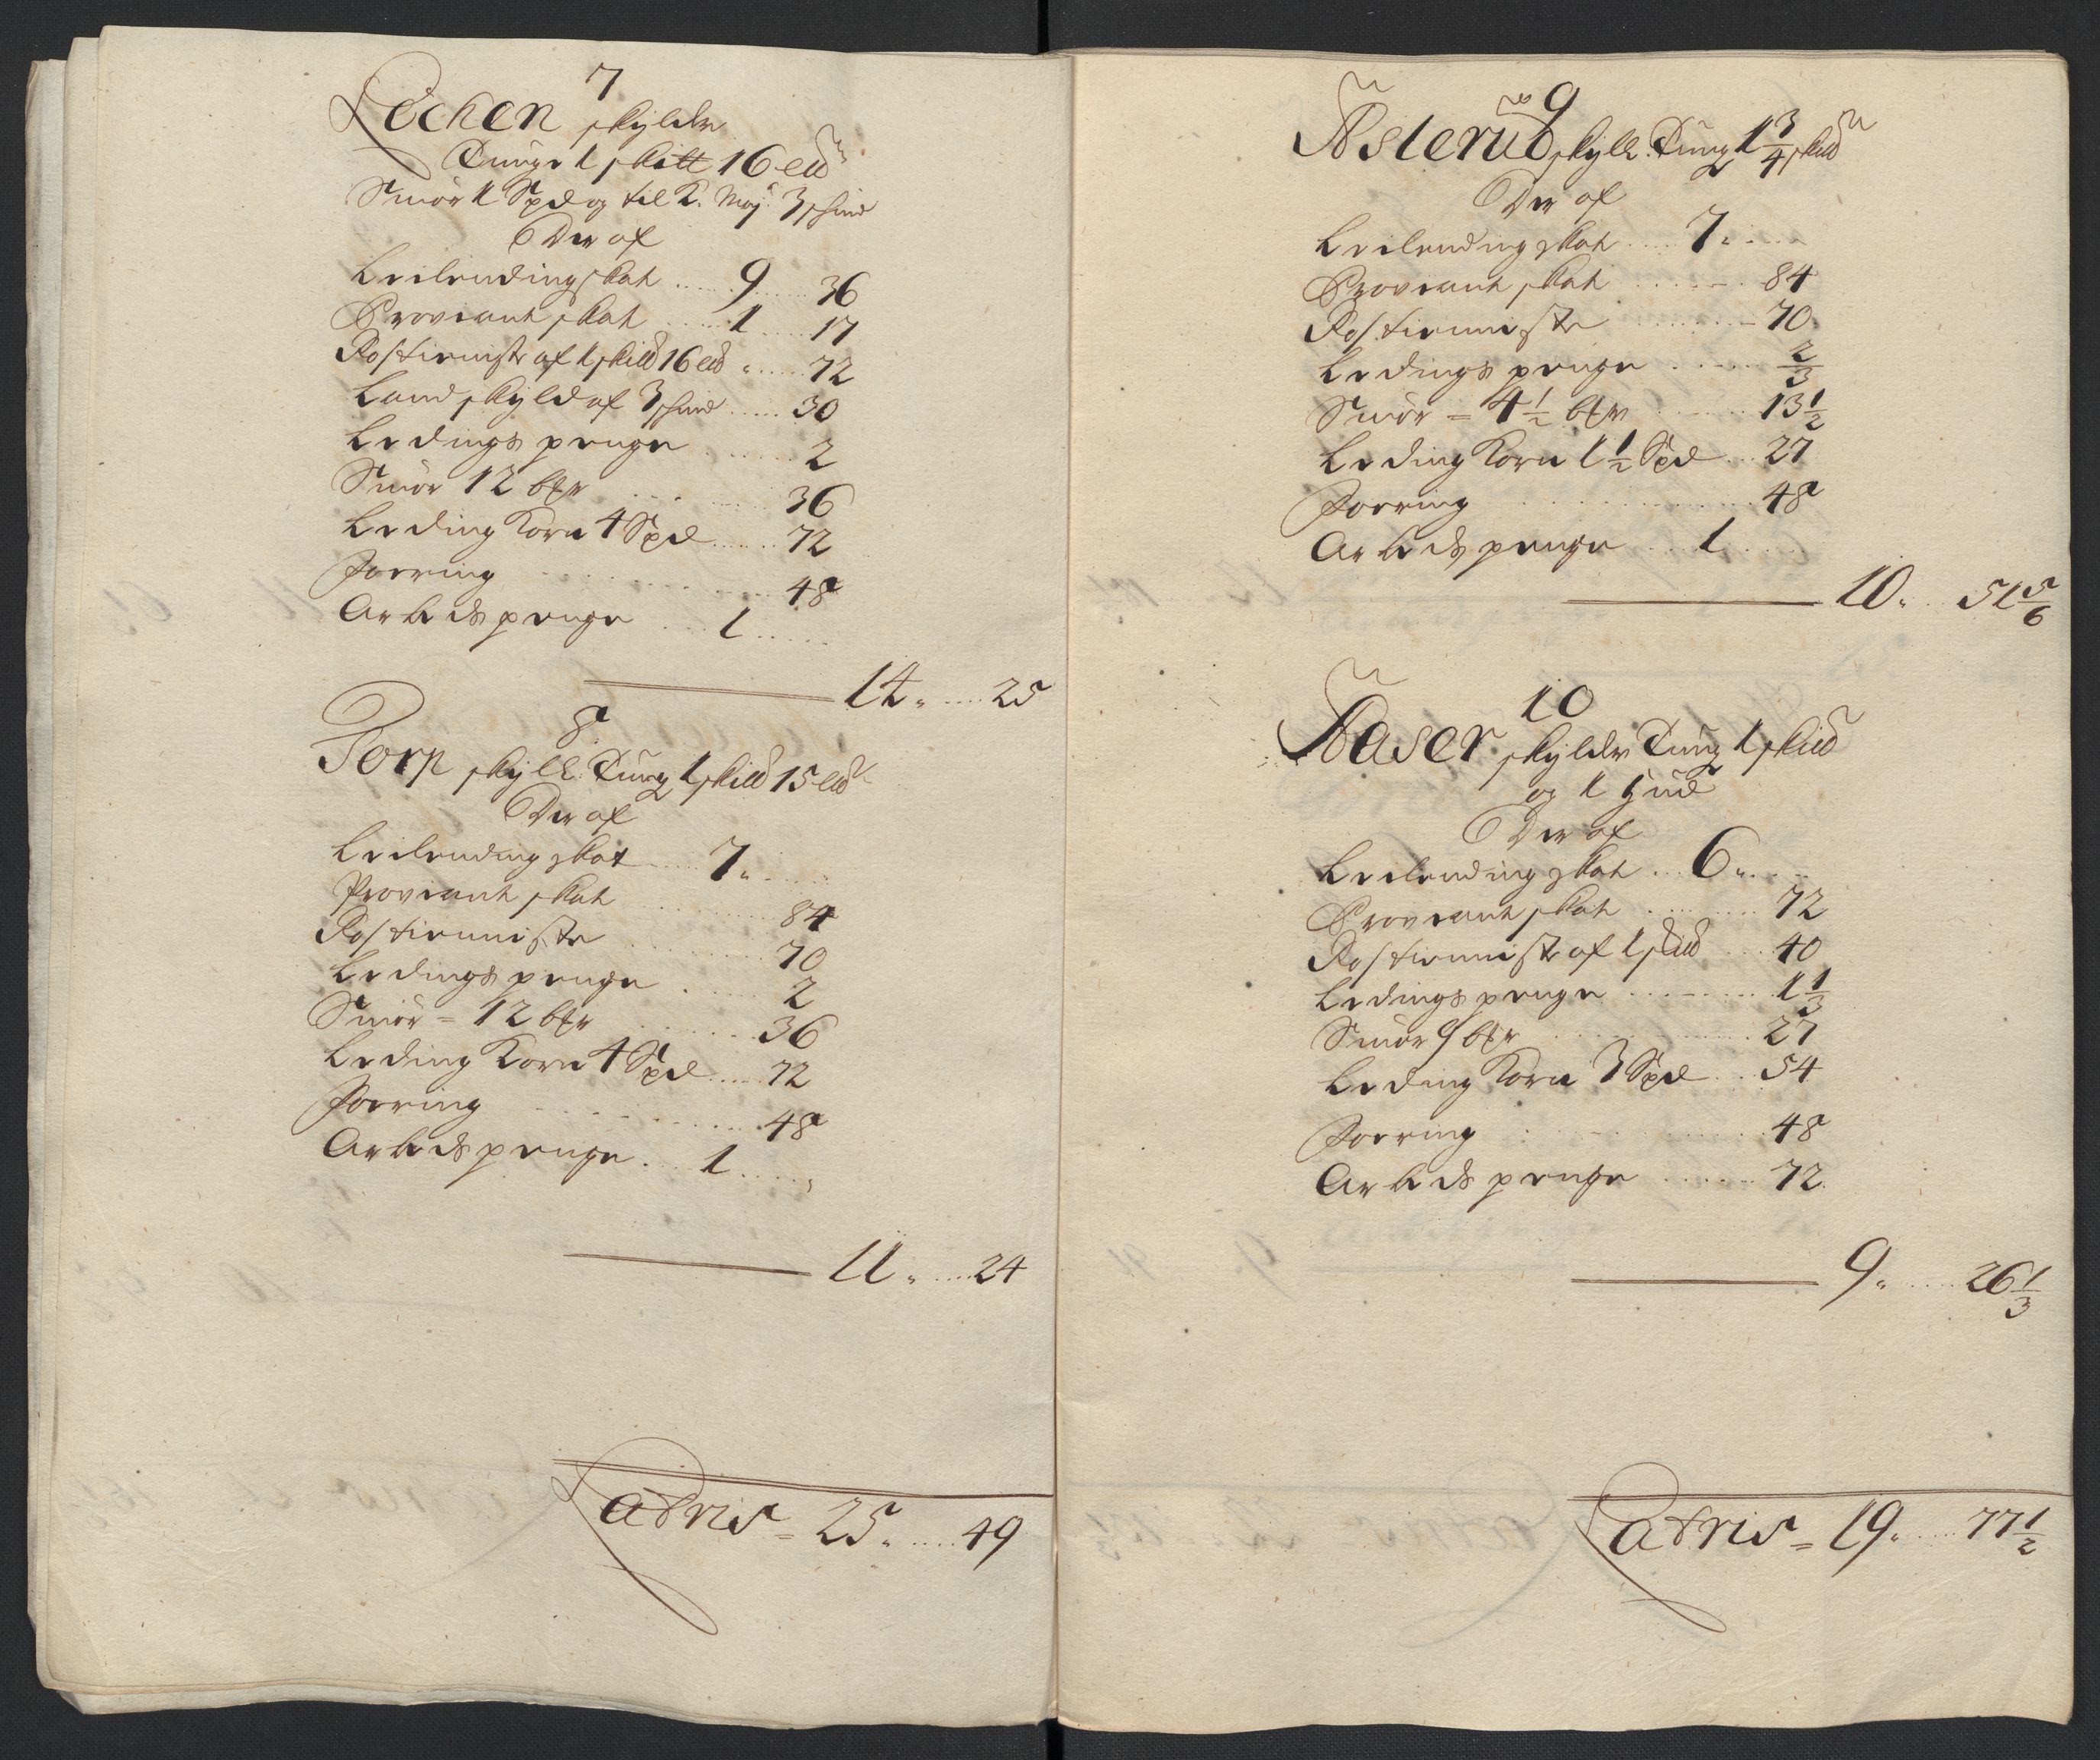 7
Löchen skylder
Tunge 1 skill 16 eld
Smör 1 Spd og til K. Maj 3 schind
Der af
Leilending skat 9 36
Proviant skat 1 17
Rostienniste af 1 skild 16 eld 72
Land skyld af 3 schind 30
Ledings penge 2
Smör 12 bfr 36
Leding Korn 4 Spd 72
Foering 48
Arbeds penge 1
14 25
8
Torp skyld: Tung 1 skild 15 eld
Der af
Leilending skat 7
Proviant skat 84
Rostienniste 70
Ledings penge 2
Smör = 12 bfr 36
Leding Korn 4 Spd 72
Foering 48
Arbeds penge 1
11 24
Latris = 25 49
9
Aasterud skyld: Tung 1 3/4 skild
Der af
Leilending skat 7
Proviant skat 84
Rostienniste 70
Ledings penge 2/3
Smör = 4 1/2 bfr 13 1/2
Leding Korn 1 1/2 Spd 27
Foering 48
Arbeds penge 1
10 51 5/6
10
Aaser skylder Tung 1 skild
og 1 hud
Der af
Leilending skat 6
Proviant skat 72
Rostienniste af 1 skild 40
Ledings penge 1 1/3
Smör 9 bfr 27
Leding Korn 3 Spd 54
Foering 48
Arbeds penge 72
9 26 1/3
Latris = 19 77 1/2